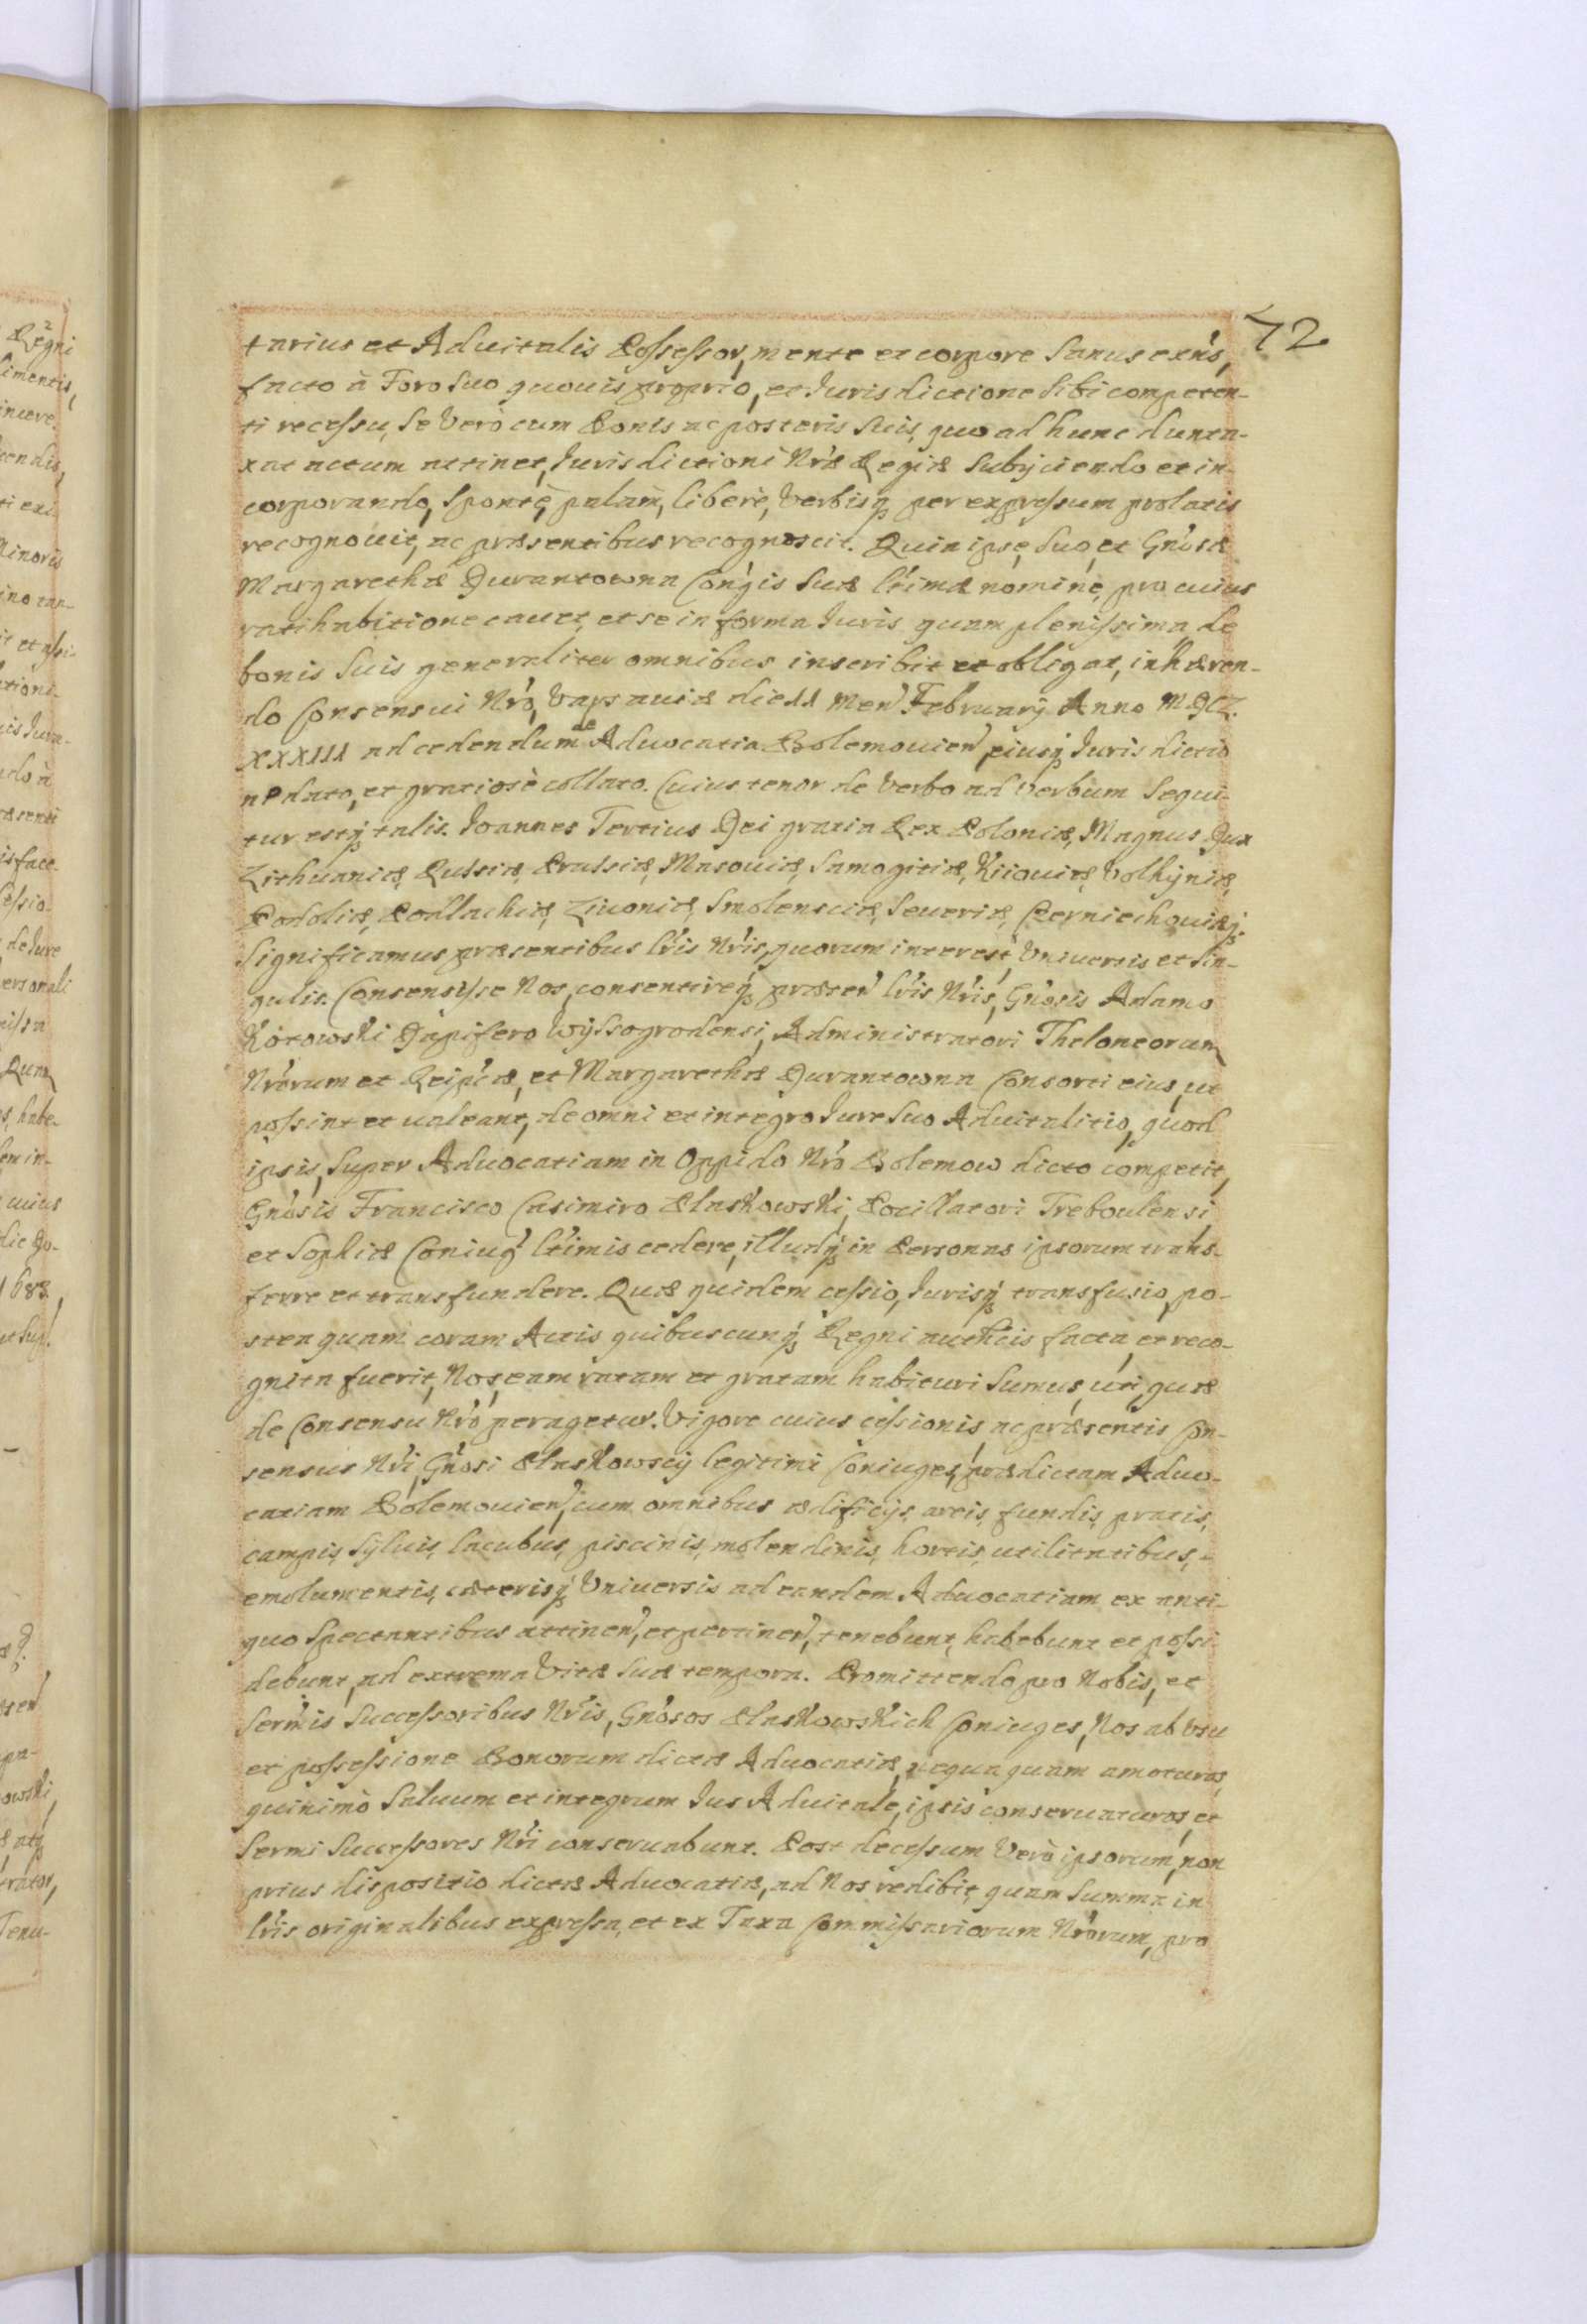 72
tarius et Aduitalis Possessor, mente et corpore Sanus exńs,
facto à Foro Suo quouis proprio, et Jurisdictione Sibi competen-
ti recessu, Se verò cum Bonis ac posteris Suis, quo ad hunc dunta-
xat actum attinet, Jurisdictioni Nŕæ Regiæ Subijciendo et in-
corporando, Spontè, palàm, liberè, Verbisq; per expressum prolatis
recognouit, ac præsentibus recognoscit. Quia ipse, Suo, et Gńosæ
Margarethæ Durantowna Cońgis Suæ lt́imæ nominè, pro cuius
ratihabitione cauet, et se in forma Juris quam plenissima de
bonis Suis generaliter omnibus inscribit et obligat, inhæren-
do Consensui Nŕo, Varsauiæ die 11 Meń February Anno MDCL
XXXIII ad cedendum de Aduocatia Bolemouień, eiusq; Jurisdictio
ne dato, et gratiosè collato. Cuius tenor de verbo ad verbum Sequi-
tur estq; talis. Joannes Tertius Dei gratia Rex Poloniæ, Magnus Dux
Lithuaniæ, Russiæ, Prussiæ, Masouiæ, Samogitiæ, Kiiouiæ, Volhyniæ,
Podoliæ, Podlachiæ, Liuoniæ, Smolensciæ, Seueriæ, Czerniechouiæq;.
Significamus præsentibus lŕis Nŕis, quorum interest, Vniuersis et Sin-
gulis. Consensisse Nos, consentireq; præseń lŕis Nŕis, Gńosis Adamo
Kotowski Dapifero Wyssogrodensi, Administratori Theloneorum
Nŕorum et Reiṕcæ, et Margarethæ Durantowna Consorti eius, ut
possint et ualeant, de omni et integro Jure Suo Aduitalitio, quod
ipsis, Super Aduocatiam in Oppido Nŕo Bolemow dicto competit,
Gńosis Francisco Casimiro Plaskowski, Pocillatori Treboulensi,
et Sophiæ Coniuǵ lt́imis cedere, illudq; in Personas ipsorum trans-
ferre et transfundere. Quæ quidem cessio, Jurisq; transfusio, po-
stea quam coram Actis quibuscunq; Regni authćis facta, et reco-
gnita fuerit, Nos, eam ratam et gratam habituri Sumus, uti, quæ
de Consensu Nŕo peragetur. Vigore cuius cessionis, ac præsentis Con-
sensus Nŕi, Gńosi Plaskowscy legitimi Coniuges, prædictam Aduo-
catiam Bolemouień, cum omnibus ædificijs, areis, fundis, pratis,
campis, Syluis, lacubus, piscinis, molendinis, hortis, utilitatibus,-
emolumentis, cæterisq; Vniuersis ad eandem Aduocatiam ex anti-
quo Spectantibus attineń, et pertineń, tenebunt, habebunt et possi-
debunt, ad extrema Vitæ Suæ tempora. Promittendo pro Nobis, et
Serḿis Successoribus Nŕis, Gńosos Plaskowskich Coniuges, Nos ab Vsu
et possessione Bonorum dictæ Aduocatiæ, nequaquam amoturos,
quinimò Saluum et integrum Jus Aduitale, ipsis conseruaturos, et
Sermi Successores Nŕi conseruabunt. Post decessum Verò ipsorum, non
prius dispositio dictæ Aduocatiæ, ad Nos redibit, quam Summa in
lŕis originalibus expressa, et ex Taxa Commissariorum Nŕorum, pro